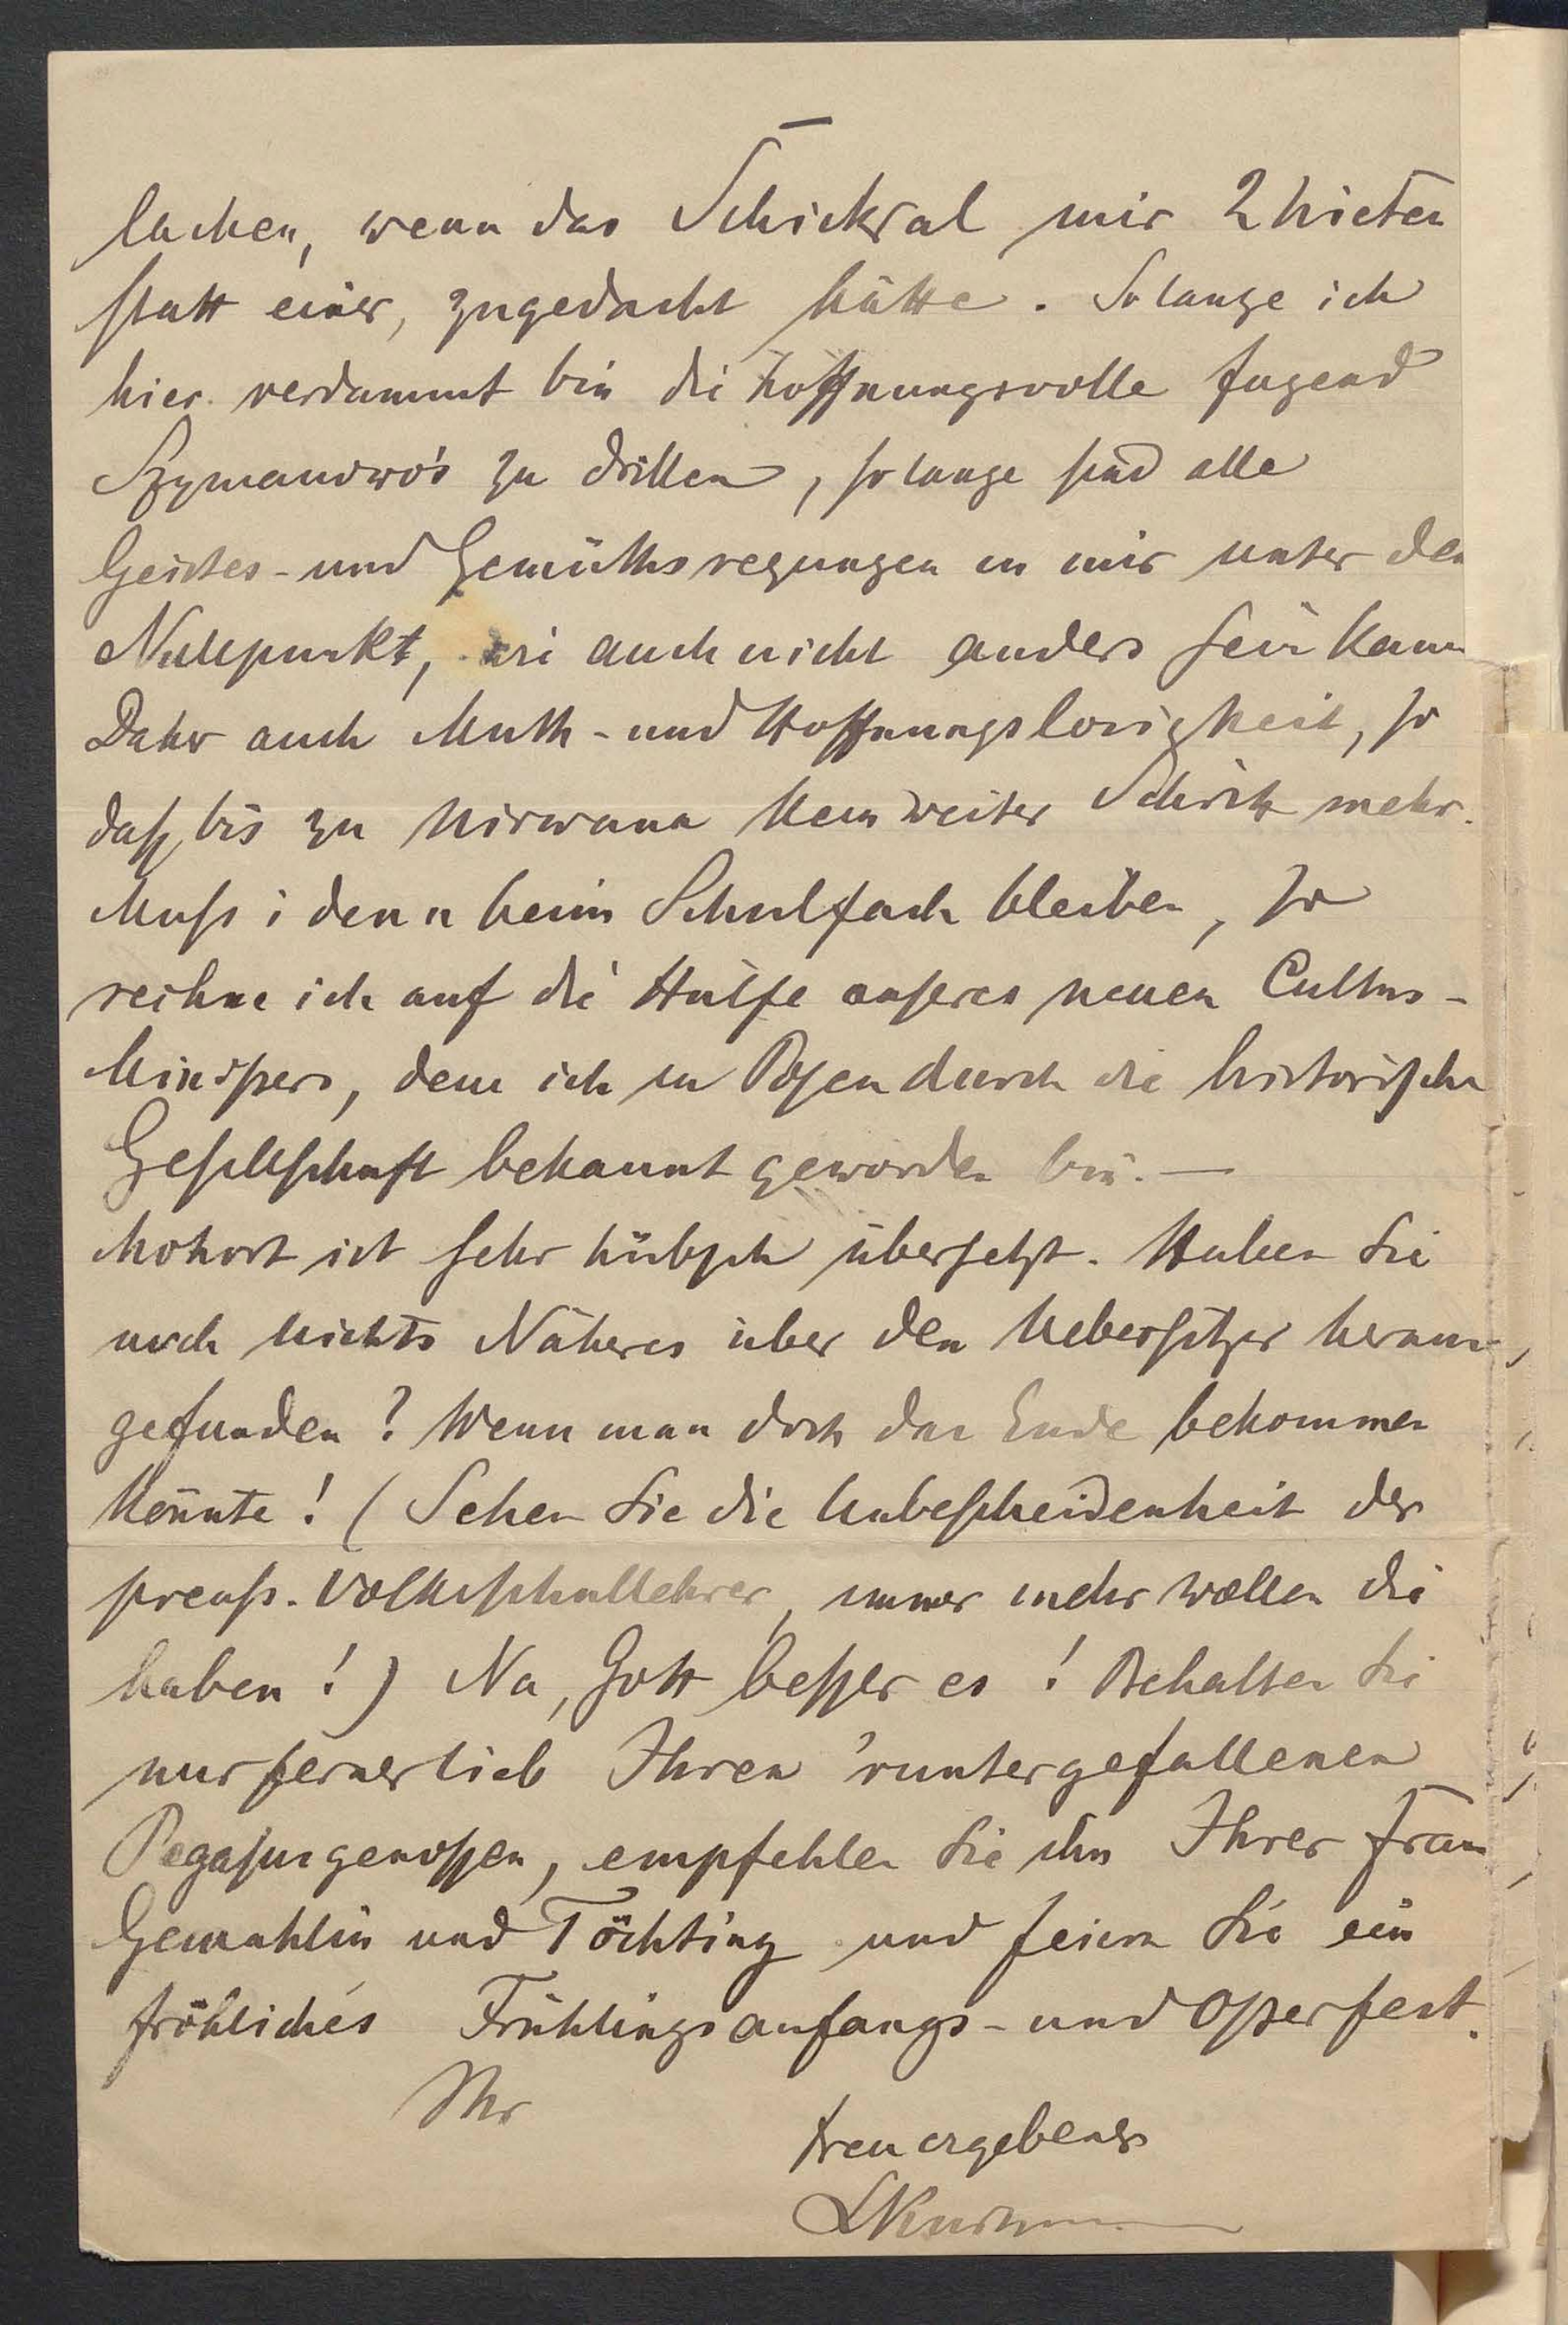 lachen, wenn das Schicksal mir 2 Nieten
statt einer, zugedacht hätte. Solange ich
hier verdammt bin die hoffnungsvolle Jugend
Szymanowo's zu drillen, solange sind alle
Geistes- und Gemüthsregungen in mir unter dem
Nullpunkt, wie auch nicht anders sein kann
Daher auch Muth- und Hoffnungslosigkeit, so
daß bis zu Nirwana kein weiter Schritt mehr.
Muss i denn beim Schulfach bleiben, so
rechne ich auf die Hülfe unseres neuen Cultus-
Ministers, dem ich in Posen durch die historische
Gesellschaft bekannt geworden bin. —
Mohort ist sehr hübsch übersetzt. Haben Sie
noch nichts Näheres über den Uebersetzer heraus-
gefunden? Wenn man doch das Ende bekommen
könnte! (Sehen Sie die Unbescheidenheit der
preuß. Volksschullehrer, immer mehr wollen die
haben!) Na, Gott besser es! Behalten Sie
nur ferner lieb Ihren 'runtergefallenen
Pegasusgenossen, empfehlen Sie ihn Ihrer Frau
Gemahlin und Töchting und feiern Sie ein
fröhliches Frühlingsanfangs- und Osterfest.
Ihr
treu ergebener